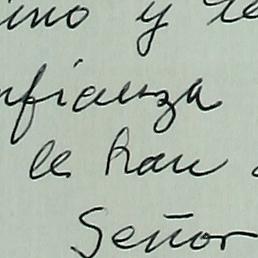 ino y te
nfianza
le han
Señor